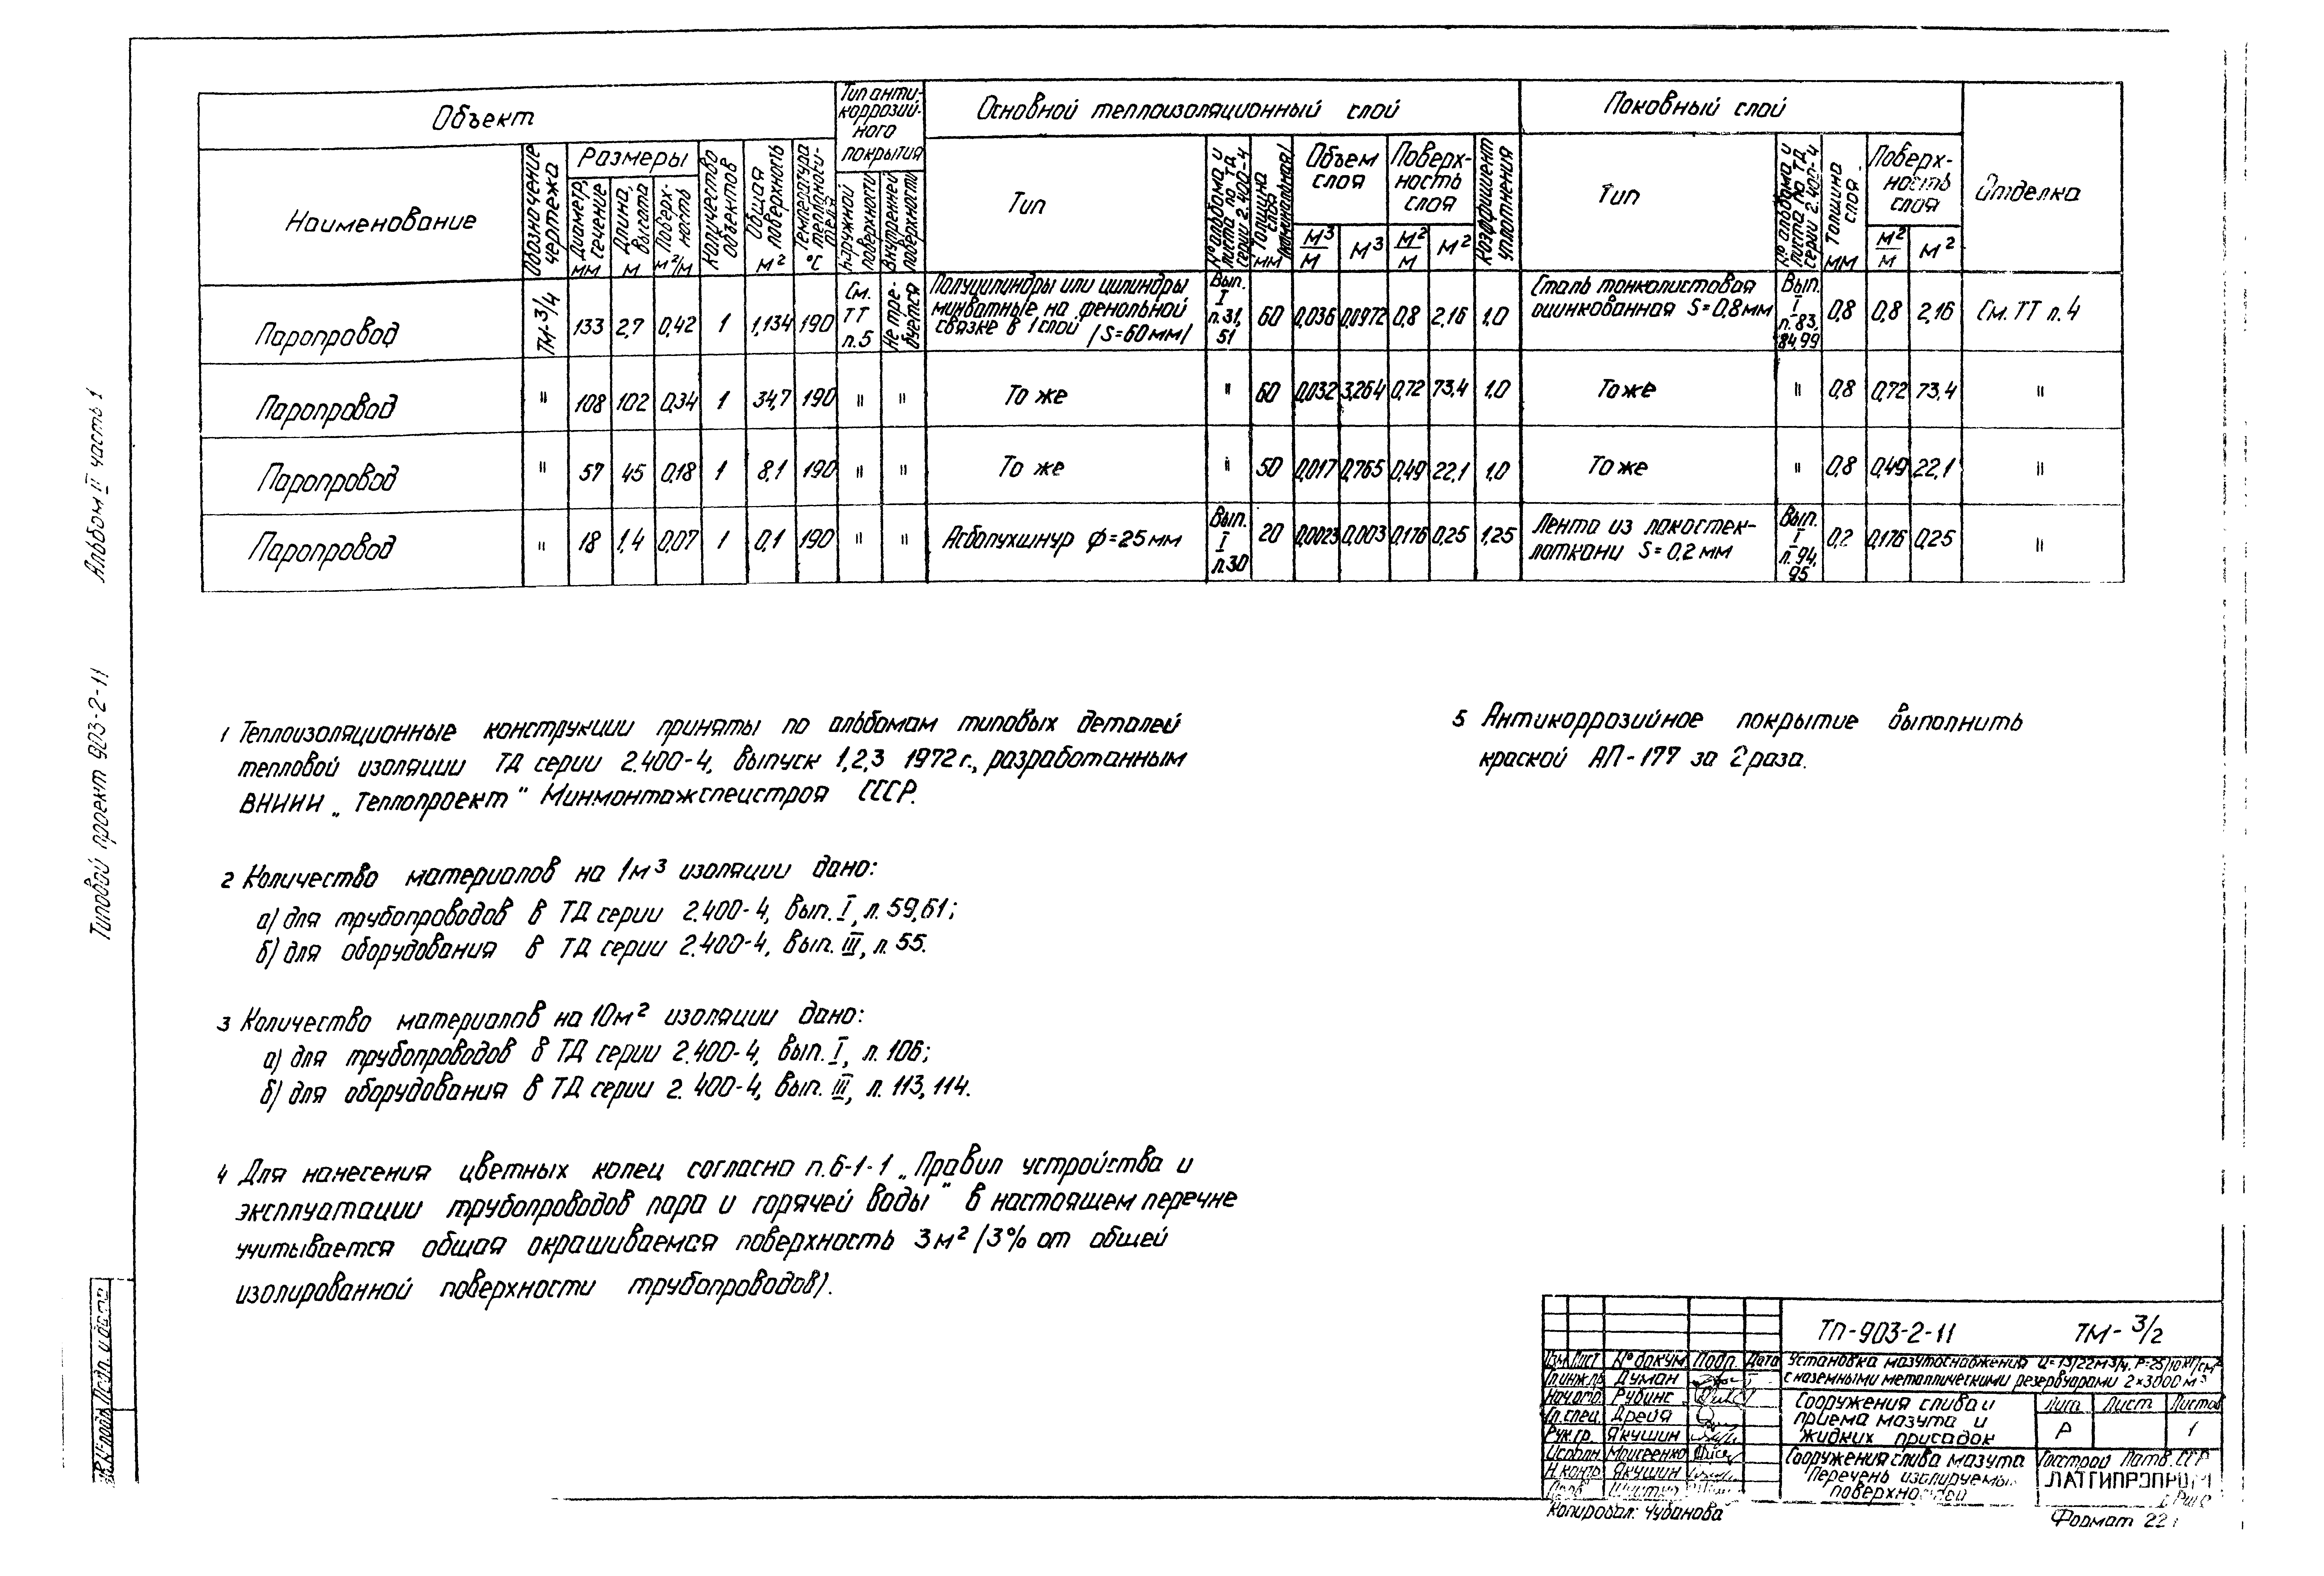 Объект
Тип анти-
коррозий-
ного
покрытия
Основной теплоизоляционный слой
Поковный слой
Отделка
Наименование
Обозначение
чертежа
Размеры
Диаметр,
сечение
мм
Длина,
высота
м
Поверх-
ность
м²/м
Количество
объектов
Общая
поверхность
м²
Температура
теплоноси-
теля
°С
Наружной
поверхности
Внутренней
поверхности
Тип
№ альбома и
листа по ТД
серии 2.400-4
Толщина
слоя
/номинальная/
мм
Объем
слоя
м³/м
м³
Поверх-
ность
слоя
м²/м
м²
Коэффициент
уплотнения
Тип
№ альбома и
листа по ТД
серии 2.400-4
Толщина
слоя
мм
Поверх-
ность
слоя
м²/м
м²
Паропровод ТМ-3/4 133 2,7 0,42 1 1,134 190 См. ТТ п.5 Не тре-буется Полуцилиндры или цилиндры минватные на фенольной связке в 1 слой /S=60мм/ Вып. I л.31, 51 60 0,036 0,0972 0,8 2,16 1,0 Сталь тонколистовая оцинкованная S=0,8мм Вып. I л.83, 84,99 0,8 0,8 2,16 См. ТТ п.4
Паропровод " 108 102 0,34 1 34,7 190 " " То же " 60 0,032 3,264 0,72 73,4 1,0 То же " 0,8 0,72 73,4 "
Паропровод " 57 45 0,18 1 8,1 190 " " То же " 50 0,017 0,765 0,49 22,1 1,0 То же " 0,8 0,49 22,1 "
Паропровод " 18 1,4 0,07 1 0,1 190 " " Асбопухшнур ф=25мм Вып. I л.30 20 0,0023 0,003 0,176 0,25 1,25 Лента из лакостек-лоткани S=0,2мм Вып. I л.94, 95 0,2 0,176 0,25 "
1 Теплоизоляционные конструкции приняты по альбомам типовых деталей
тепловой изоляции ТД серии 2.400-4, выпуск 1,2,3 1972г., разработанным
ВНИИИ „Теплопроект" Минмонтажспецстроя СССР.
2 Количество материалов на 1м³ изоляции дано:
а) для трубопроводов в ТД серии 2.400-4, вып. I, л. 59,61;
б) для оборудования в ТД серии 2.400-4, вып. III, л. 55.
3 Количество материалов на 10м² изоляции дано:
а) для трубопроводов в ТД серии 2.400-4, вып. I, л. 106;
б) для оборудования в ТД серии 2.400-4, вып. III, л. 113, 114.
4 Для нанесения цветных колец согласно п.6-1-1 „Правил устройства и
эксплуатации трубопроводов пара и горячей воды" в настоящем перечне
учитывается общая окрашиваемая поверхность 3м² /3% от общей
изолированной поверхности трубопроводов).
5 Антикоррозийное покрытие выполнить
краской АП-177 за 2 раза.
Типовой проект 903-2-11 Альбом II часть 1
Подп. и дата
ТП-903-2-11 ТМ-3/2
Изм Лист № докум. Подп. Дата
Гл.инж.пр Думан
Нач.отд. Рубинс
Гл.спец. Дрейя
Рук.гр. Якушин
Исполн Моисеенко
Н.контр Якушин
Установка мазутоснабжения Q=13/22м³/ч, Р=25/10кг/см²
с наземными металлическими резервуарами 2×3000м³
Сооружения слива и
приема мазута и
жидких присадок
Лит. Лист Листов
Р 1
Сооружения слива мазута
Перечень изолируемых
поверхностей
Госстрой Латв.ССР
ЛАТГИПРОПРОМ
г. Рига
Копировал: Чубанова
Формат 22г